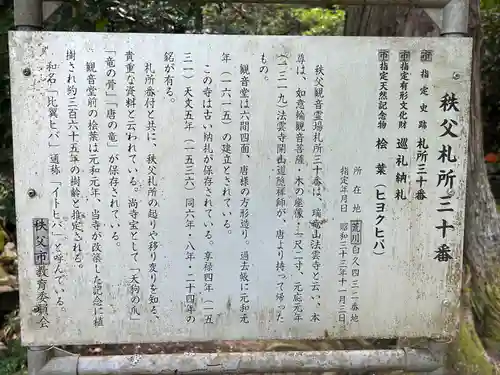 秩父札所三十番
市指定史跡 札所三十番
市指定有形文化財 巡礼納札
市指定天然記念物 桧葉（ヒヨクヒバ）
所在地 荒川白久四三二番地
指定年月日 昭和三十三年十一月三日
秩父観音霊場札所三十番は、瑞竜山法雲寺と云い、本
尊は、如意輪観音菩薩・木の座像・一尺二寸、元応元年
（一三一九）法雲寺開山道隠禅師が、唐より持って帰った
もの。
観音堂は六間四面、唐様の方形造り。過去帳に元和元
年（一六一五）の建立とされている。
この寺は古い納札が保存されている。享禄四年（一五
三一）天文五年（一五三六）同六年・八年・二十四年の
銘が有る。
札所番付と共に、秩父札所の起りや移り変りを知る、
貴重な資料と云われている。尚寺宝として「天狗の爪」
「竜の骨」「唐の竜」が保存されている。
観音堂前の桧葉は元和元年、当寺が改築した記念に植
樹され約三百六十五年の樹齢と推定される。
和名「比翼ヒバ」通称「イトヒバ」と呼んでいる。
秩父市教育委員会